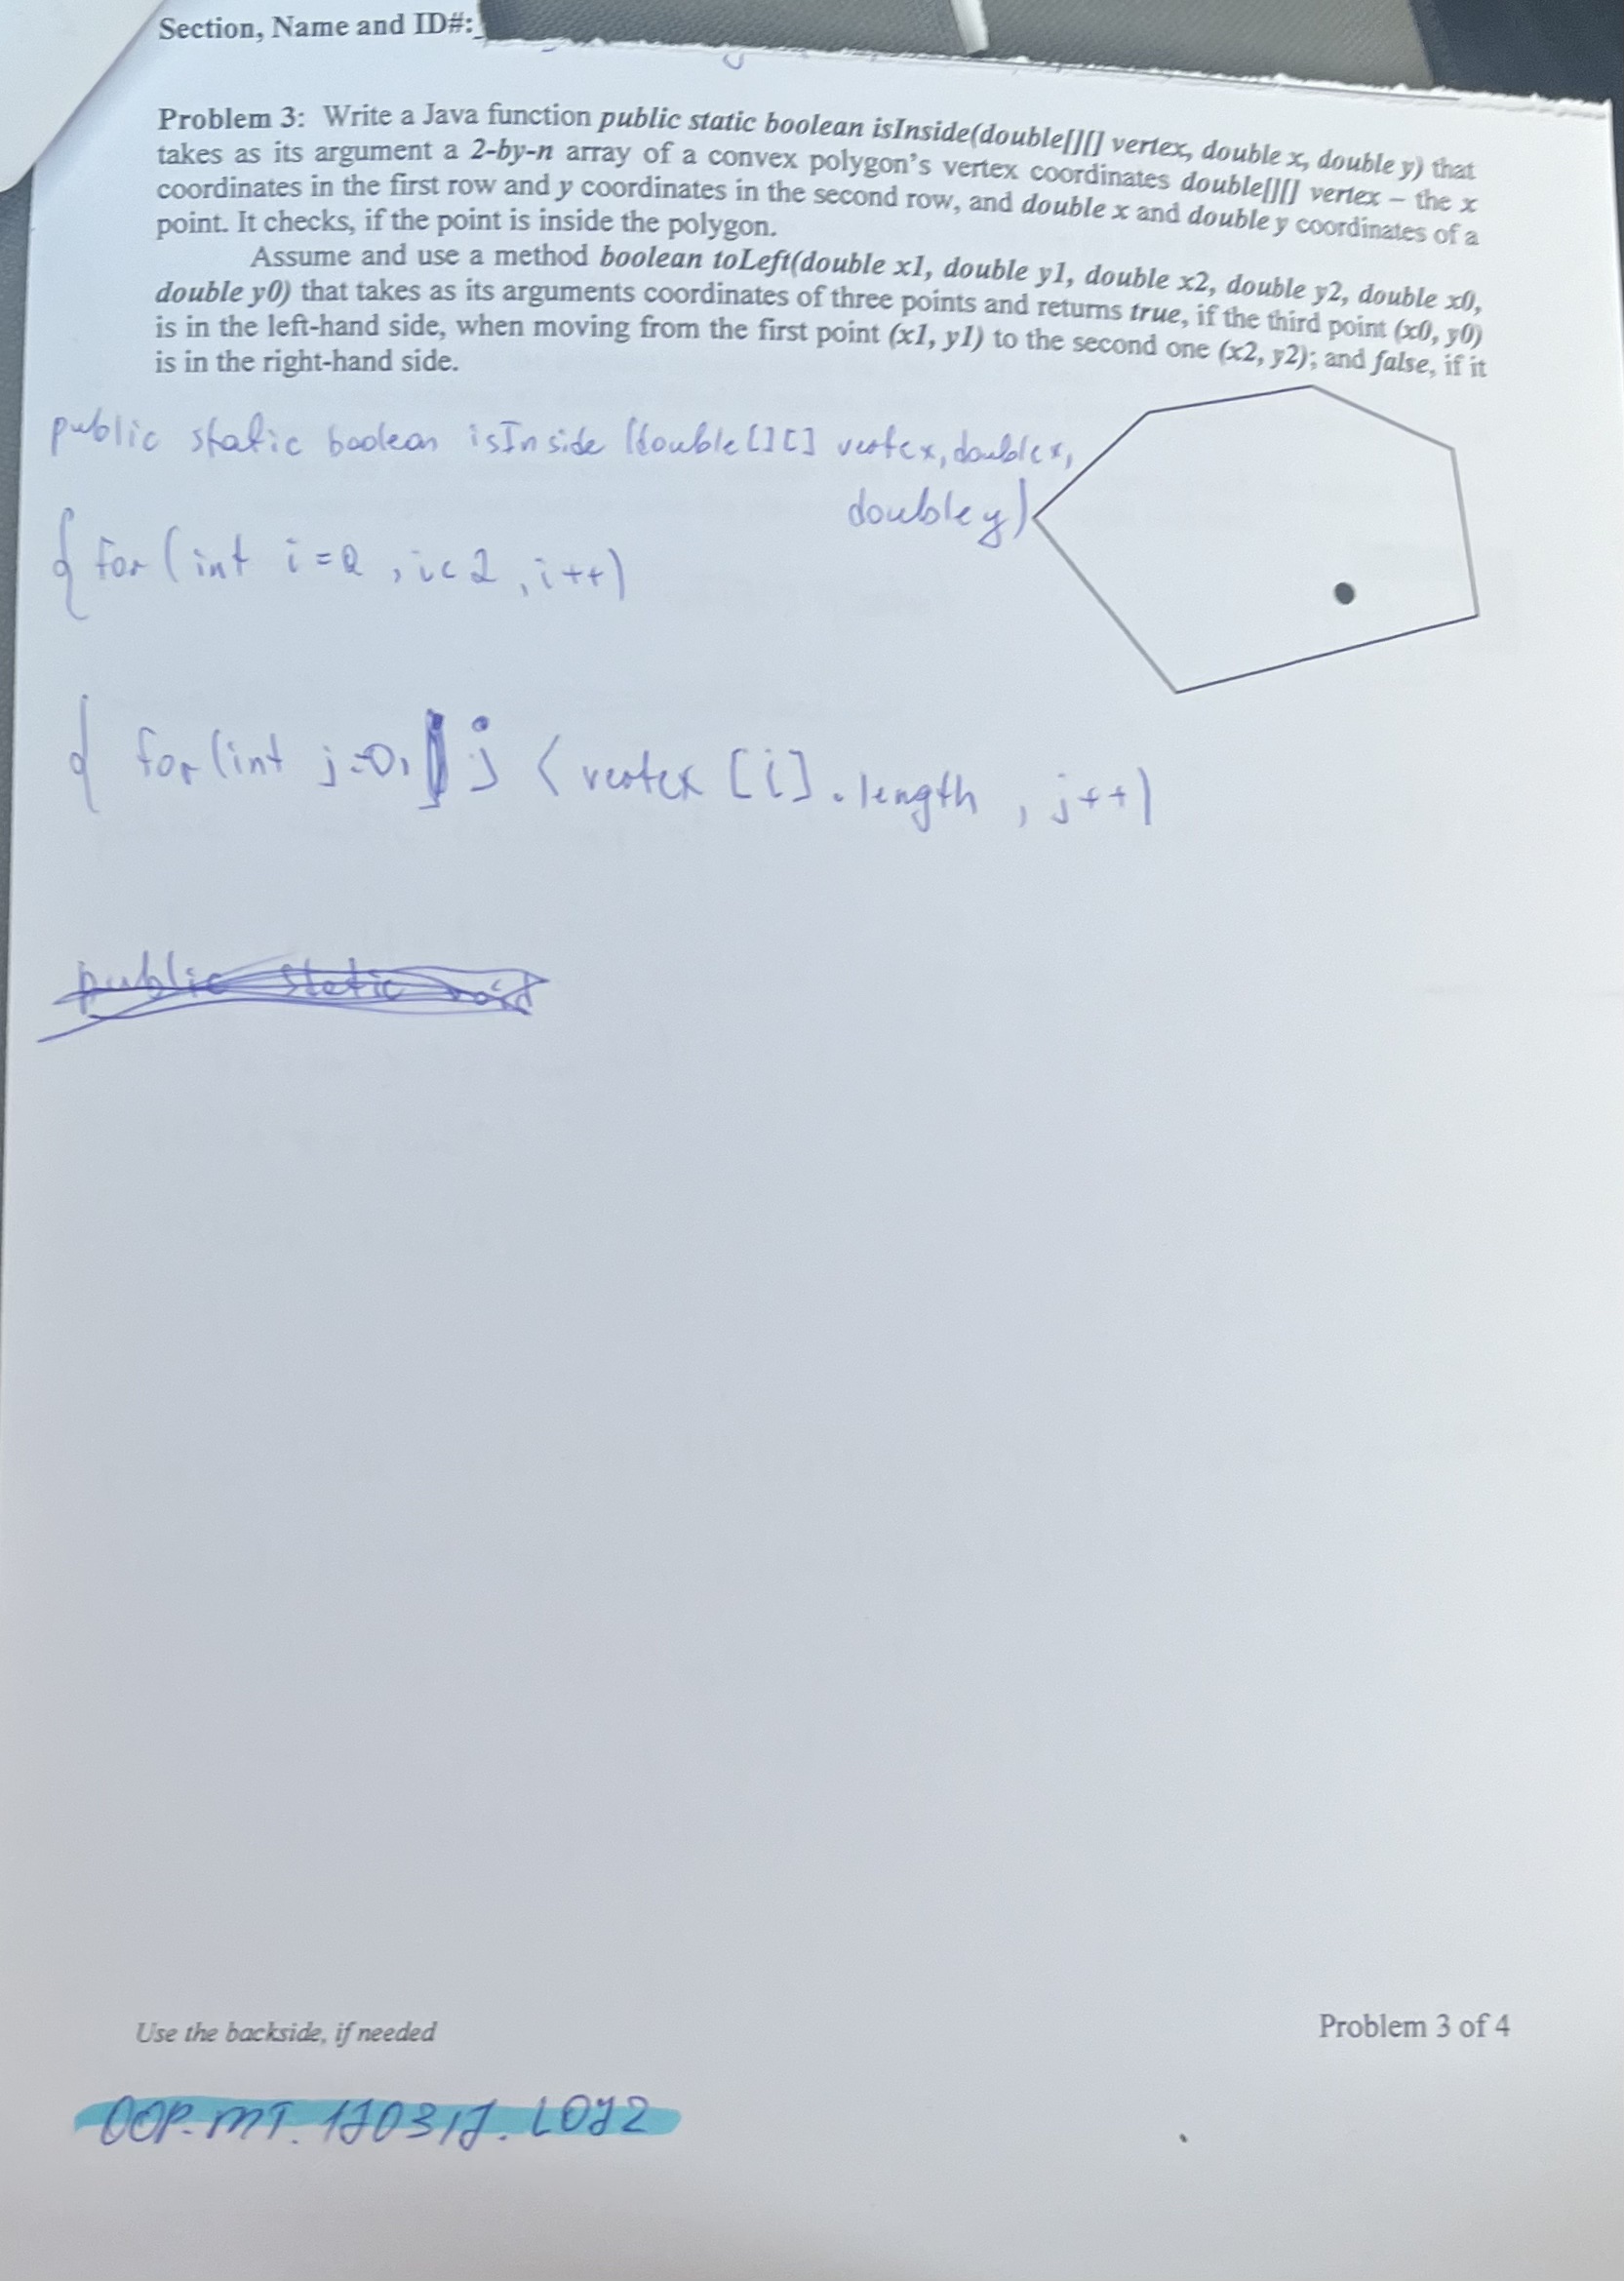 Section, Name and ID#:
Problem 3: Write a Java function public static boolean isInside(double[][] vertex, double x, double y) that
takes as its argument a 2-by-n array of a convex polygon's vertex coordinates double[][] vertex – the x
coordinates in the first row and y coordinates in the second row, and double x and double y coordinates of a
point. It checks, if the point is inside the polygon.
Assume and use a method boolean toLeft(double x1, double y1, double x2, double y2, double x0,
double y0) that takes as its arguments coordinates of three points and returns true, if the third point (x0, y0)
is in the left-hand side, when moving from the first point (x1, y1) to the second one (x2, y2); and false, if it
is in the right-hand side.
public static boolean isInside (double[][] vertex, double x,
double y)
{ for (int i = 0 , i < 2 , i++)
{ for (int j=0, j < vertex [i] . length , j++)
public static void
Use the backside, if needed
Problem 3 of 4
OOP. MT.